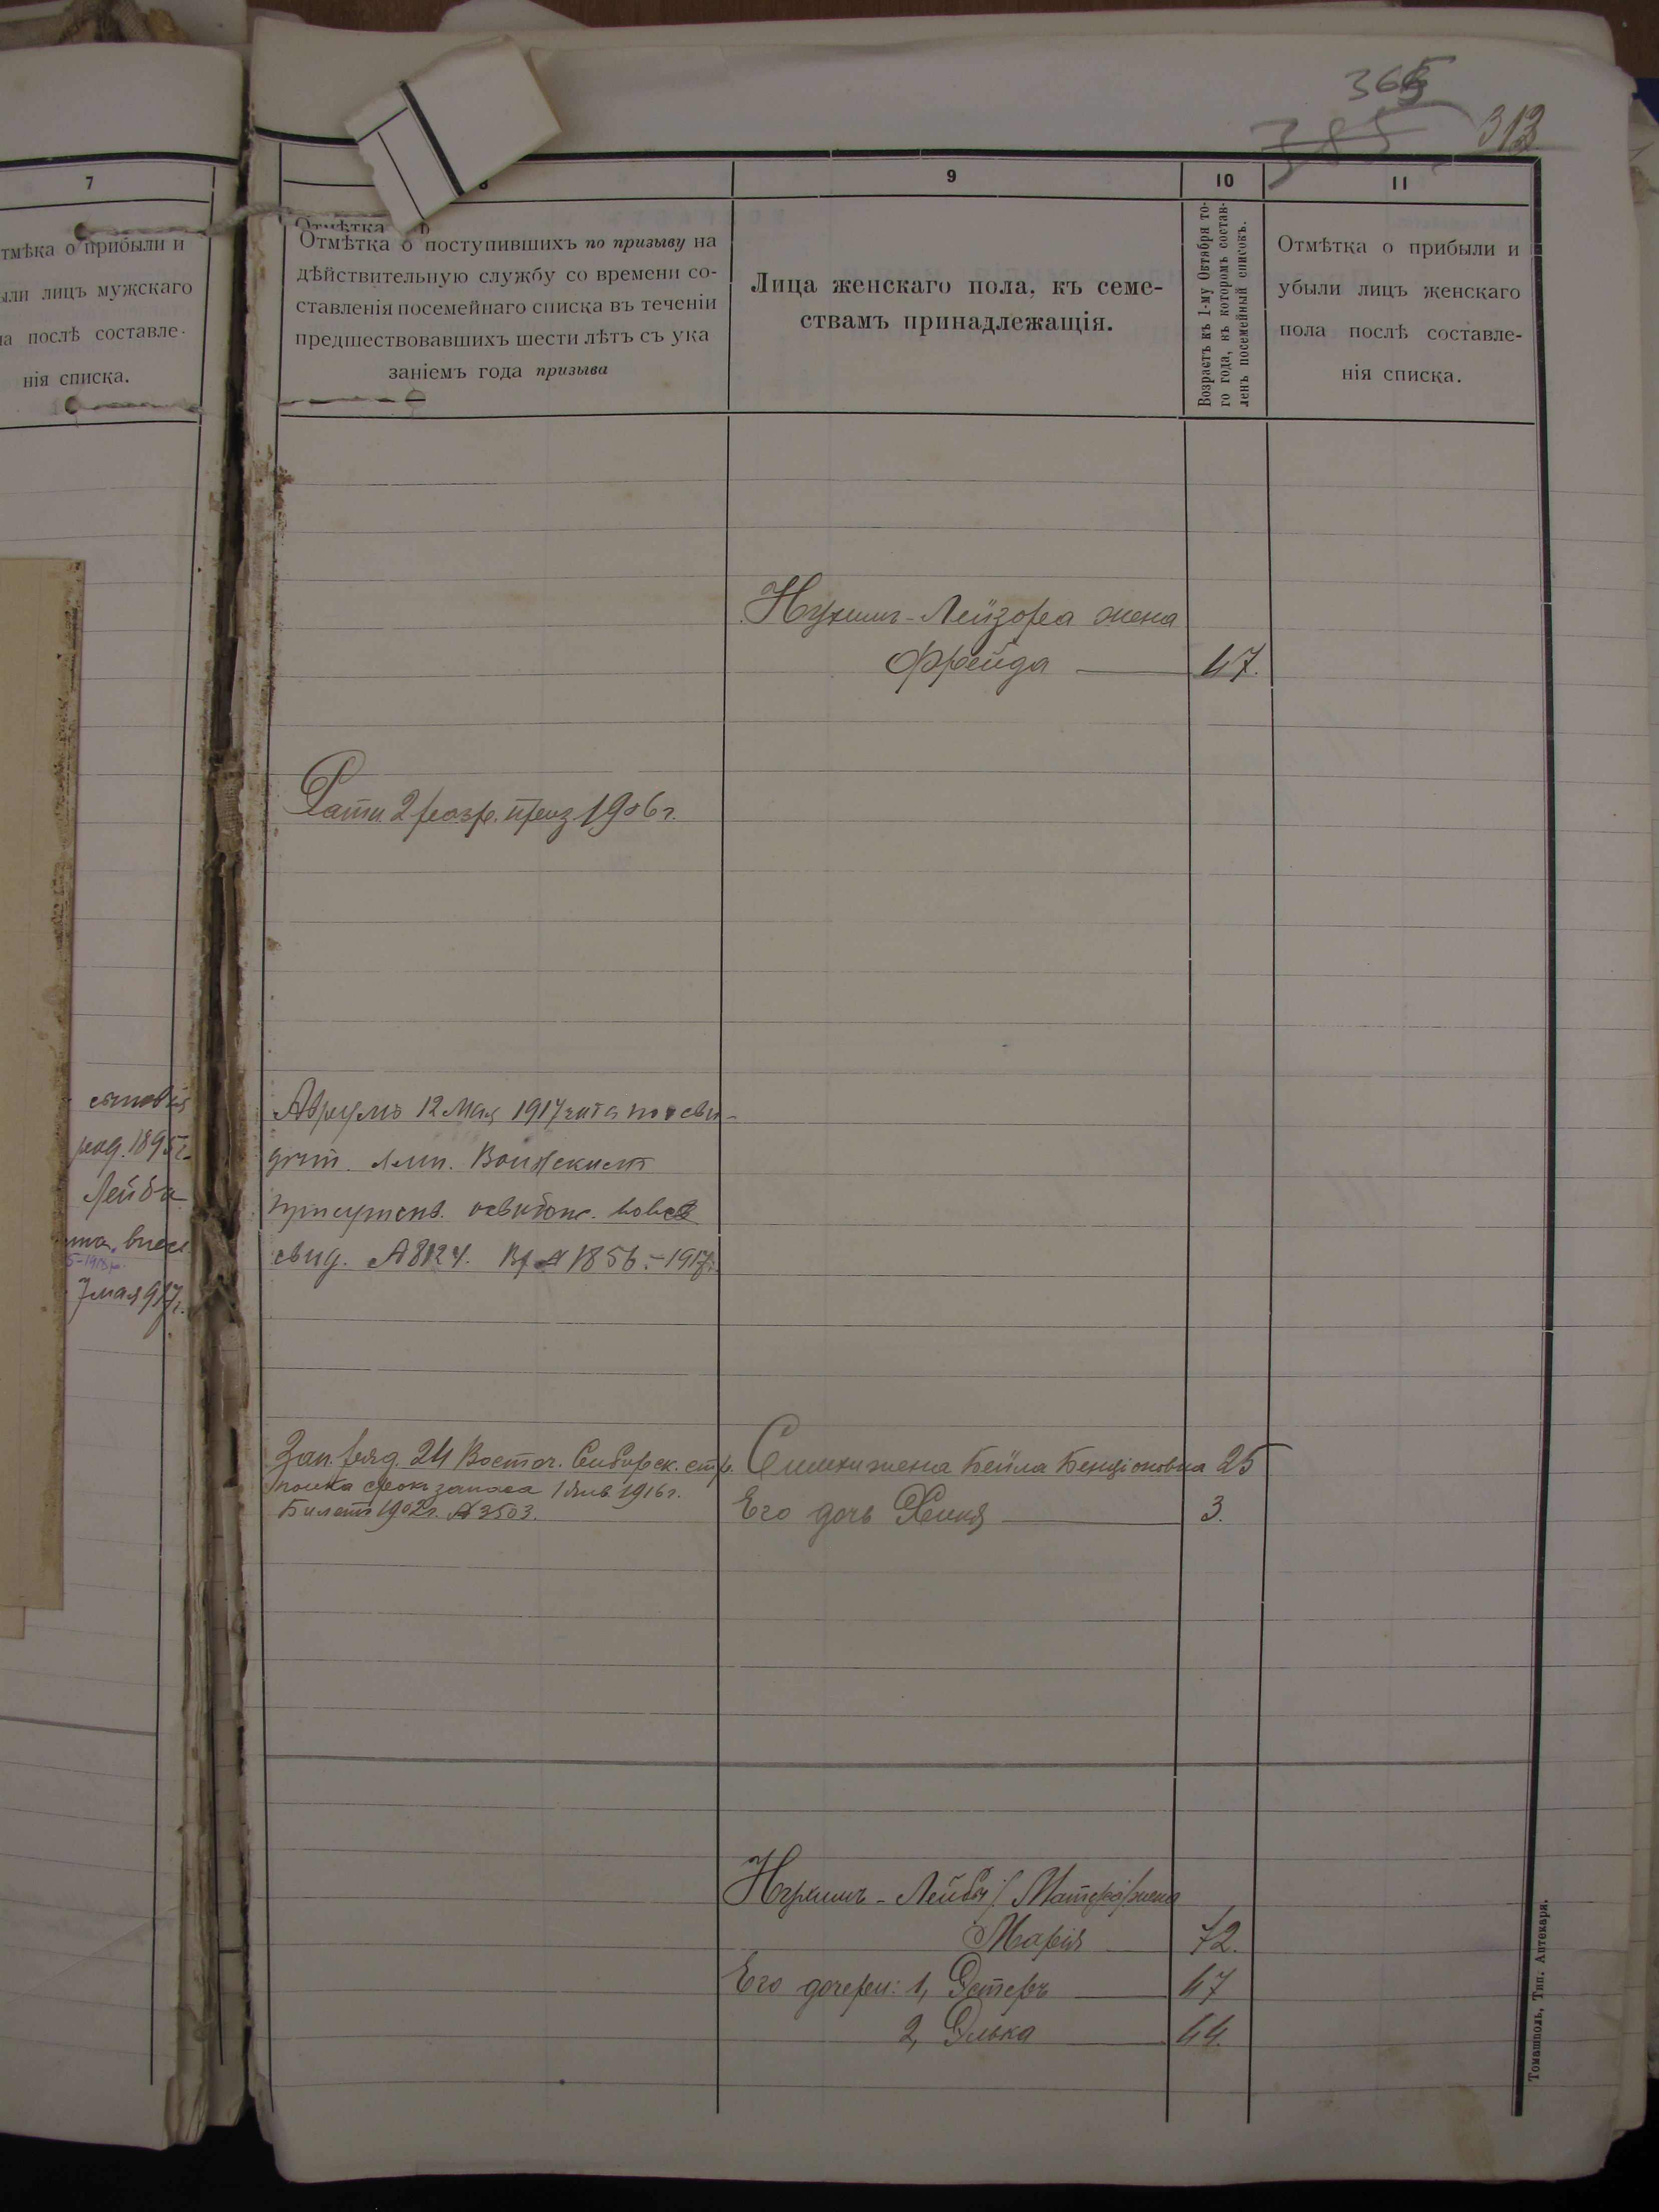 365
385
313
7
тмѣка о прибыли и
ыли лицъ мужскаго
ла послѣ составле-
нія списка.
8
9
10
11
Отмѣтка о
Отмѣтка о поступившихъ по призыву на
дѣйствительную службу со времени со-
ставленія посемейнаго списка въ теченіи
предшествовавшихъ шести лѣтъ съ ука
заніемъ года призыва
Лица женскаго пола, къ семе-
ствамъ принадлежащія.
Возрастъ къ 1-му Октября то-
го года, въ которомъ состав-
ленъ посемейный списокъ.
Отмѣтка о прибыли и
убыли лицъ женскаго
пола послѣ составле-
нія списка.
Нухимъ-Лейзора жена
Фрейда 47.
Ратн. 2 разр. приз 1906 г.
род. 1895 г.
Лейба
7 мая 917 г.
Аврумъ 12 Мая 1917 по сви-
дѣт. Воинскимъ
присутств.
свид. № 8124. 1856.-1917.
Зап. ряд. 24 Восточ. Сибирск. стр.
полка срокъ запаса 1 Янв. 1916 г.
Билетъ 1902 г. № 3503.
жена Бейла Бенціоновна 25
Его дочь Хикя 3.
Нухимъ-Лейбы / Матери / жена
Марія 72.
Его дочери: 1, Эстеръ 47
2, Элька 44.
Томашполь, Тип. Аптекаря.